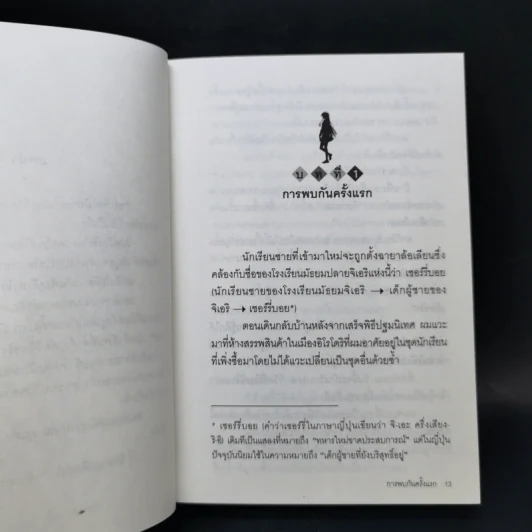 บทที่ 1
การพบกันครั้งแรก
นักเรียนชายที่เข้ามาใหม่จะถูกตั้งฉายาล้อเลียนซึ่ง
คล้องกับชื่อของโรงเรียนมัธยมปลายจิเอริแห่งนี้ว่า เชอร์รี่บอย
(นักเรียนชายของโรงเรียนมัธยมจิเอริ → เด็กผู้ชายของ
จิเอริ → เชอร์รี่บอย*)
ตอนเดินกลับบ้านหลังจากเสร็จพิธีปฐมนิเทศ ผมแวะ
มาที่ห้างสรรพสินค้าในเมืองฮิโรโดริที่ผมอาศัยอยู่ในชุดนักเรียน
ที่เพิ่งซื้อมาโดยไม่ได้แวะเปลี่ยนเป็นชุดอื่นด้วยซ้ำ
* เชอร์รี่บอย (คำว่าเชอร์รี่ในภาษาญี่ปุ่นเขียนว่า จิ-เอะ ครึ่งเสียง-
ริ-อิ) เดิมทีเป็นแสลงที่หมายถึง "ทหารใหม่ขาดประสบการณ์" แต่ในญี่ปุ่น
ปัจจุบันนิยมใช้ในความหมายถึง "เด็กผู้ชายที่ยังบริสุทธิ์อยู่"
การพบกันครั้งแรก 13